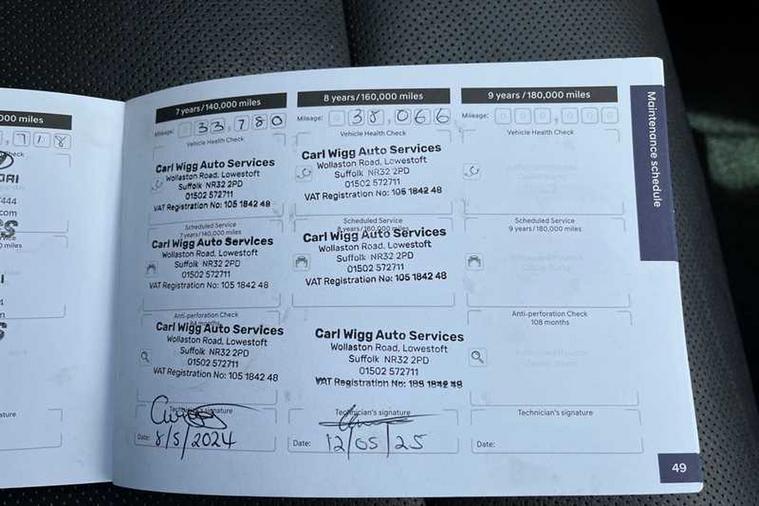 000 miles
,718
heck
DAI
444
com
S
0 miles
ature
7 years/140,000 miles
Mileage: 33,780
Vehicle Health Check
Carl Wigg Auto Services
Wollaston Road, Lowestoft
Suffolk NR32 2PD
01502 572711
VAT Registration No: 105 1842 48
Scheduled Service
7 years/140,000 miles
Carl Wigg Auto Services
Wollaston Road, Lowestoft
Suffolk NR32 2PD
01502 572711
VAT Registration No: 105 1842 48
Anti-perforation Check
months
Carl Wigg Auto Services
Wollaston Road, Lowestoft
Suffolk NR32 2PD
01502 572711
VAT Registration No: 105 1842 48
Technician's signature
Date: 8/5/2024
8 years/160,000 miles
Mileage: 38,066
Vehicle Health Check
Carl Wigg Auto Services
Wollaston Road, Lowestoft
Suffolk NR32 2PD
01502 572711
VAT Registration No: 105 1842 48
Scheduled Service
8 years/160,000 miles
Carl Wigg Auto Services
Wollaston Road, Lowestoft
Suffolk NR32 2PD
01502 572711
VAT Registration No: 105 1842 48
Carl Wigg Auto Services
Wollaston Road, Lowestoft
Suffolk NR32 2PD
01502 572711
VAT Registration No:
Technician's signature
Date: 12/05/25
9 years/180,000 miles
Mileage: 000,000
Vehicle Health Check
Scheduled Service
9 years/180,000 miles
Anti-perforation Check
108 months
Technician's signature
Date:
Maintenance schedule
49